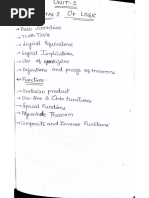 UNIT-1
OF LOGIC
→ Truth Table
→ Logical Equivalence
→ Logical Implication
→ Use of
→ Definitions and proofs of theorems
* Functions:
→ Cartesian product
→ One-One & Onto functions
→ Special Functions
→ Theorem
→ Composite and Inverse Functions